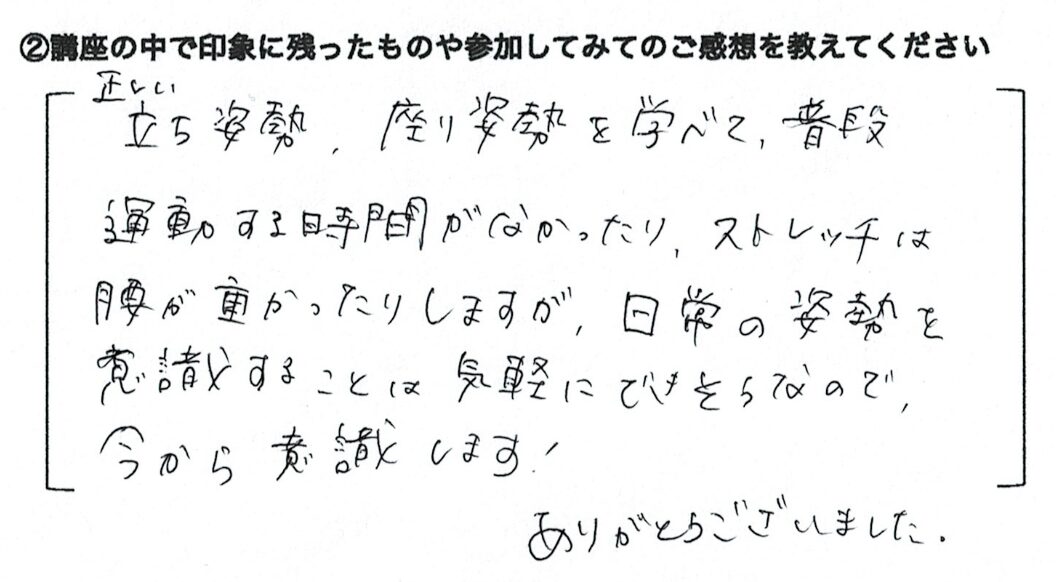 ②講座の中で印象に残ったものや参加してみてのご感想を教えてください
正しい
立ち姿勢、座り姿勢を学べて、普段
運動する時間がなかったり、ストレッチは
腰が重かったりしますが、日常の姿勢を
意識することは気軽にできそうなので、
今から意識します!
ありがとうございました.